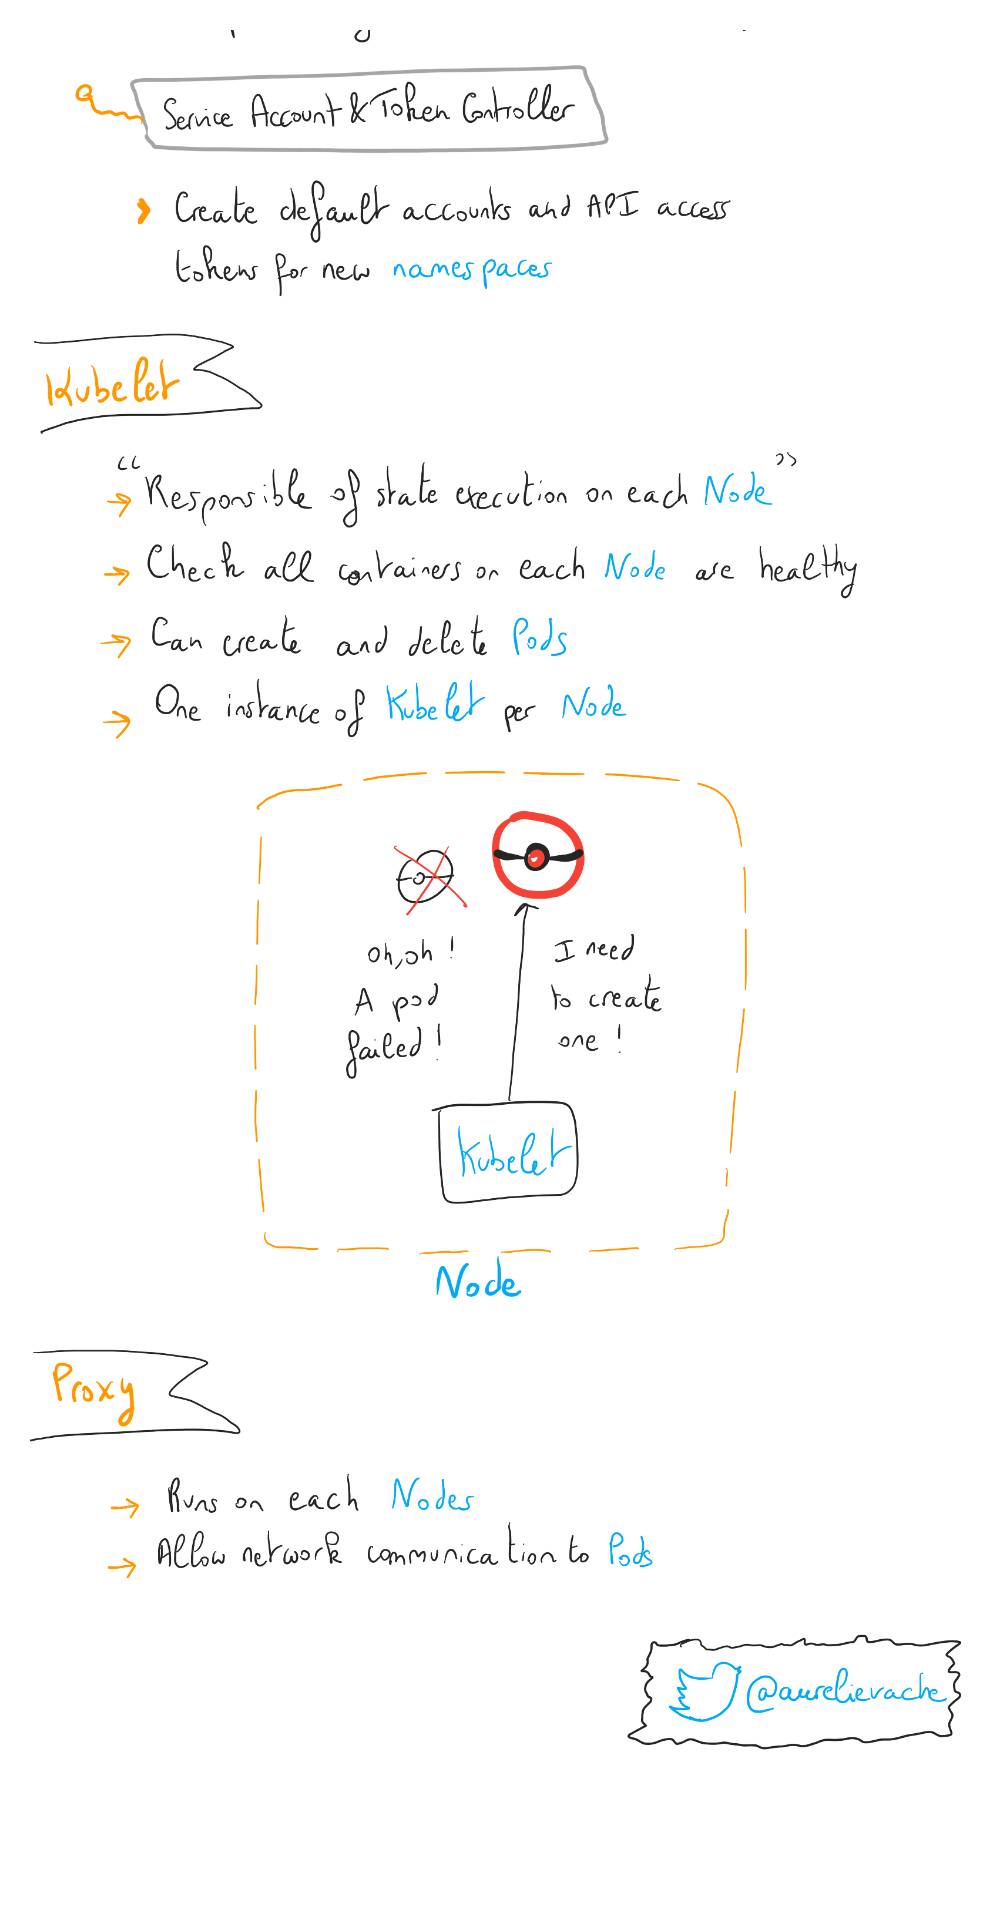 Service Account & Token Controller
Create default accounts and API access
tokens for new namespaces
Kubelet
"Responsible of state execution on each Node"
Check all containers on each Node are healthy
Can create and delete Pods
One instance of Kubelet per Node
Oh, oh !
A pod
failed !
I need
to create
one !
Kubelet
Node
Proxy
Runs on each Nodes
Allow network communication to Pods
@aurelievache